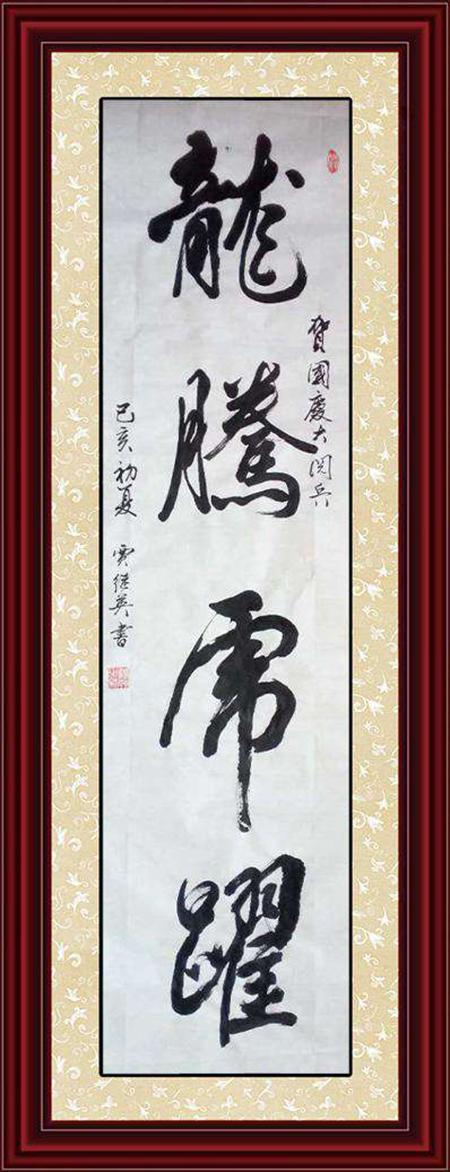 賀國慶大閱兵
龍騰虎躍
己亥初夏 賈继英書